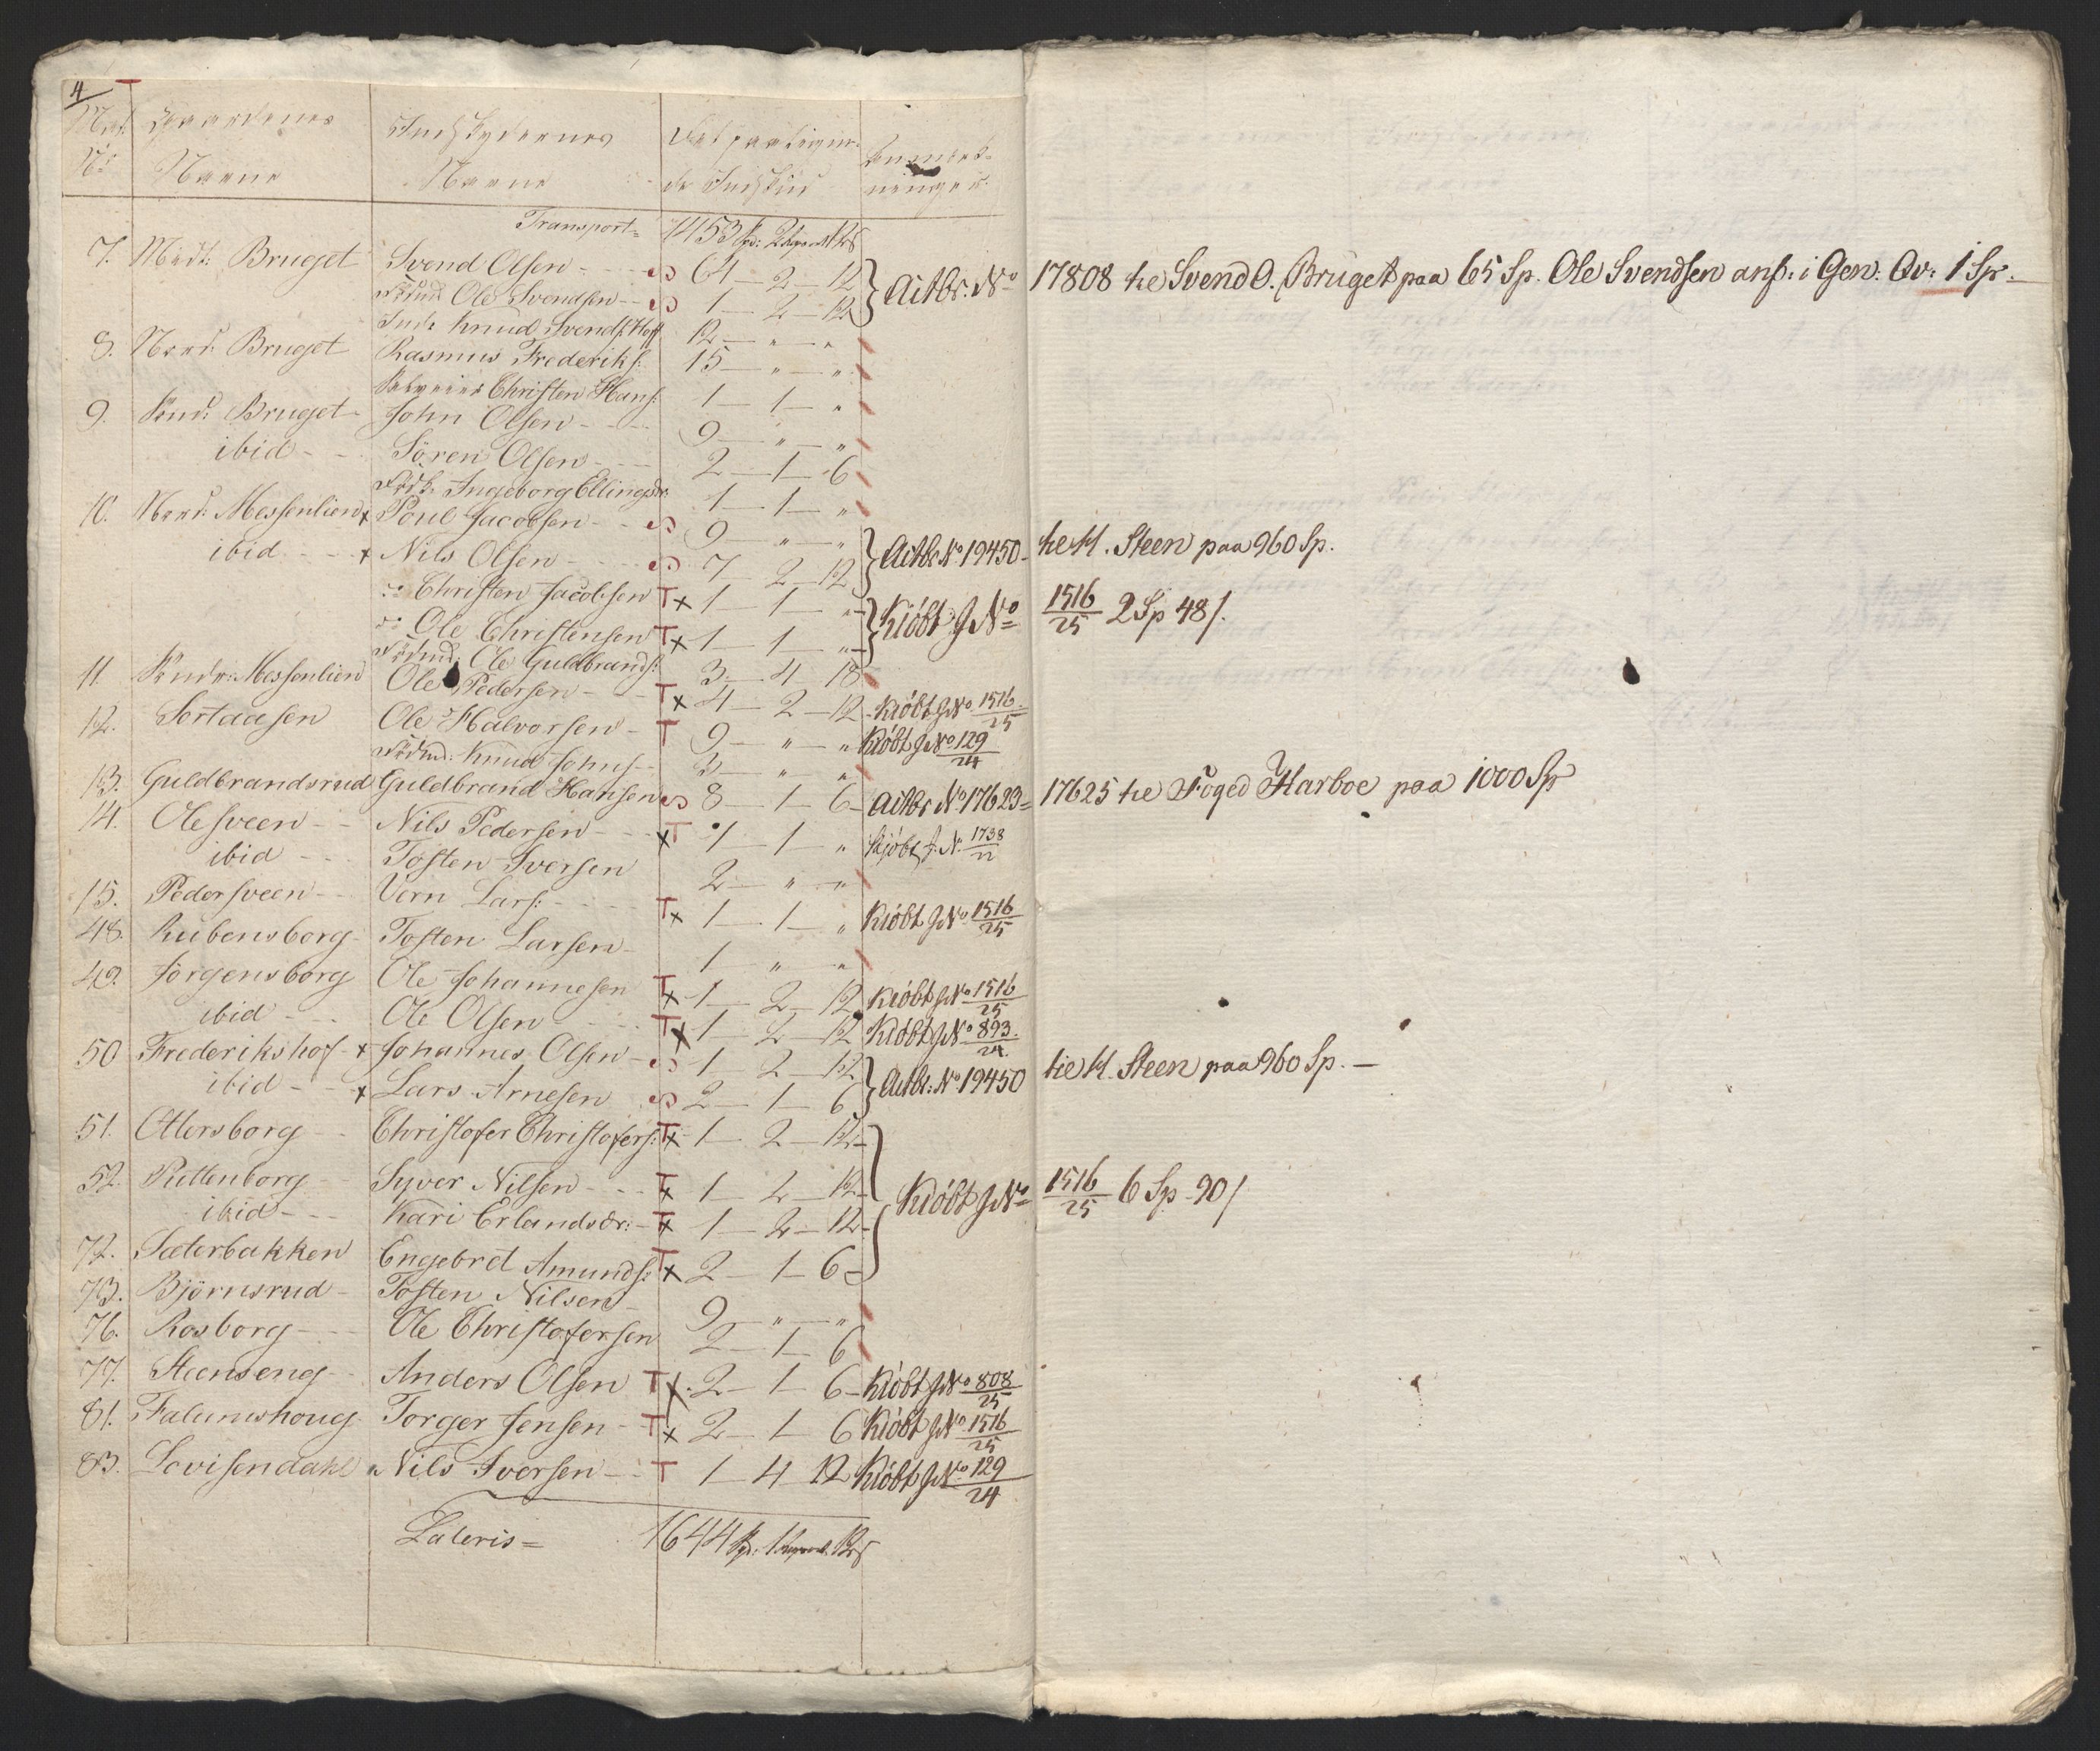 4
Mat: Gaardenes Indskydernes Det paalign- Anmerk-
No Navne Navne de Indskud ninger.
Transport= 1453 Spd: 2 12s
7. Midt: Bruget Svend Olsen - S 64 - 2 - 12 } Actbr. No 17808 til Svend O. Bruget paa 65 Sp. Ole Svendsen anf: i Gen: Qv: 1 Sp.
Ole Svendsen - S 1 - 2 - 12
Inds: Knud Svends: Hoff 12 - " - "
8. Nord: Bruget Rasmus Frederiks: 15 - " - "
Christen Hans: 1 - 1 - "
9. Sønd: Bruget John Olsen - 9 - " - "
ibid - Sören Olsen - 2 - 1 - 6
Ingeborg Ellingsdr: 1 - 1 - "
10. Nord: Messenlien x Poul Jacobsen - S 9 - " - " } Actbr No 19450 - til H. Steen paa 960 Sp.
ibid - x Nils Olsen - S 7 - 2 - 12
Christen Jacobsen T x 1 - 1 - " } Kiöbt J No 1516/25 2 Sp 48 s.
Ole Christensen T x 1 - 1 - "
Ole Guldbrands: 3 - 4 - 18
11. Søndr: Messenlien Ole Pedersen - T x 4 - 2 - 12 - Kiöbt J No 1516/25
12. Sortaasen Ole Halvorsen - T 9 - " - " Kiöbt J No 129/24
Knud Johns: - 3 - " - "
13. Guldbrandsrud Guldbrand Hansen S 8 - 1 - 6 - Actbr No 17623 = 17625 til Foged Harboe paa 1000 Sp
14. Olesveen - Nils Pedersen - x T 1 - 1 - " Kjöbt J. N. 1738/22
ibid - Tosten Iversen 2 - " - "
15. Pedersveen - Vern Lars: - T x 1 - 1 - " Kiöbt J No 1516/25
48. Rubensborg - Tosten Larsen - 1 " - "
49. Jörgensborg Ole Johannesen T x 1 - 2 - 12 Kiöbt J No 1516/25
ibid - Ole Olsen - T x 1 - 2 - 12 Kiöbt J No 893/24
50 Frederikshof - x Johannes Olsen - S 1 - 2 - 12 } Actbr: No 19450 til H. Steen paa 960 Sp. -
ibid - x Lars Arnesen S 2 - 1 - 6
51. Ottersborg - Christofer Christofers: T x 1 - 2 - 12 -
52. Rettenborg Syver Nilsen - T x 1 - 2 - 12 - } Kiöbt J No 1516/25 6 Sp - 90 s
ibid - Kari Erlandsdr: - T x 1 - 2 - 12 -
72. Sæterbakken Engebret Amunds: T x 2 - 1 - 6 -
73. Björnsrud - Tosten Nilsen - 9 - " - "
76. Rosborg - Ole Christofersen 2 - 1 - 6
77. Steenseng - Anders Olsen T x. 2 - 1 - 6 - Kiöbt J No 808/25
81. Falumshoug Torger Jensen - T x 2 - 1 - 6 Kiöbt J No 1516/25
83. Lovisendahl Nils Iversen - T 1 - 4 - 12 Kiöbt J No 129/24
Lateris = 1644 Spd: 1 12s